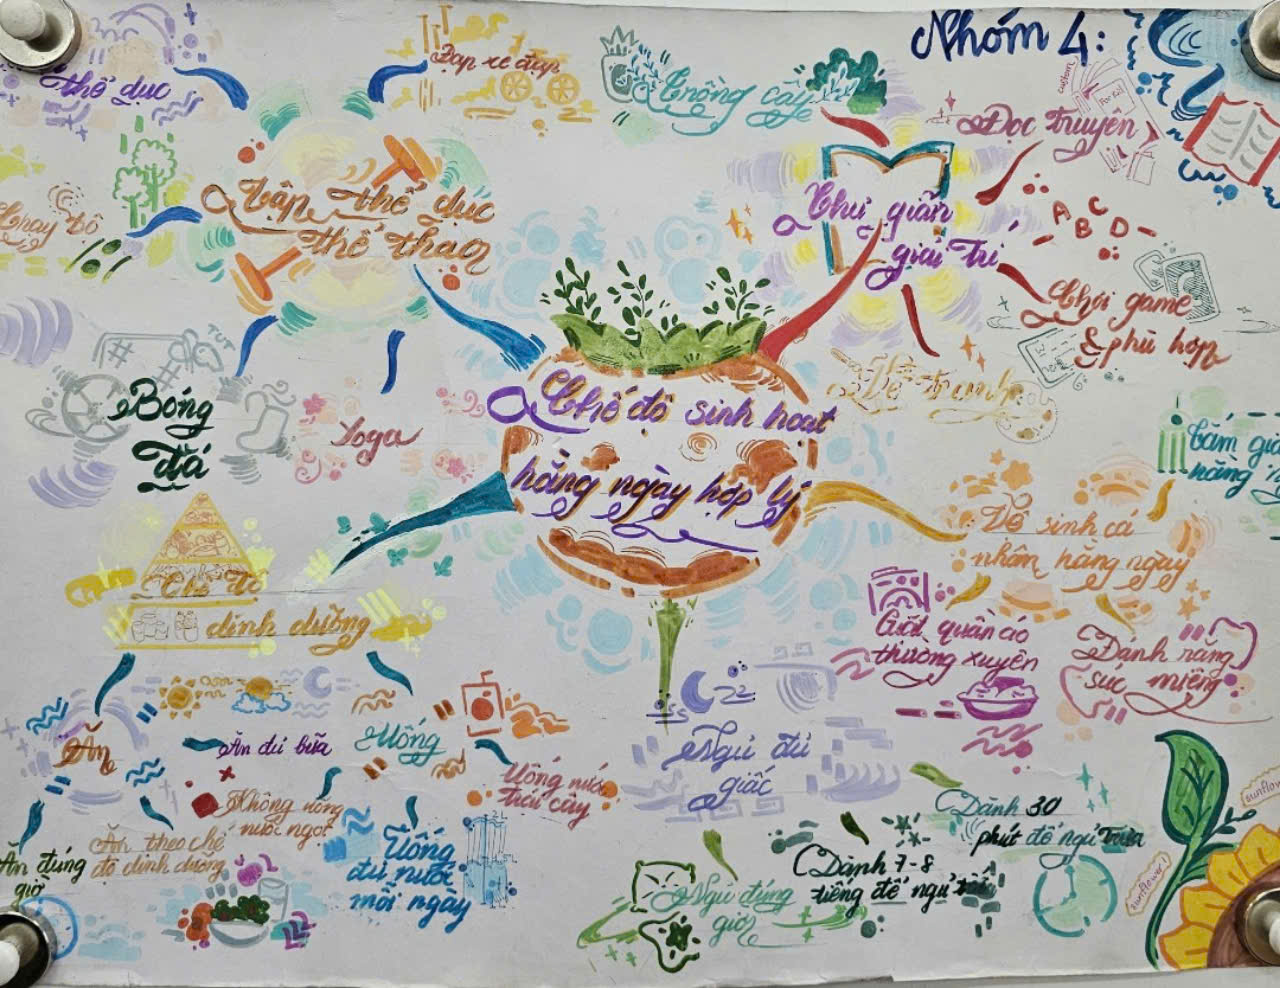 Nhóm 4:
Thể dục
Đạp xe đạp
Trồng cây
Đọc truyện
Chạy bộ
Tập thể dục
thể thao
Thư giãn
giải trí
A B C D
Chơi game
phù hợp
Vẽ tranh
Bóng
đá
Yoga
Chế độ sinh hoạt
hằng ngày hợp lý
Tắm
hằng
Vệ sinh cá
nhân hằng ngày
Giặt quần áo
thường xuyên
Đánh răng
súc miệng
Chế độ
dinh dưỡng
Ăn
Ăn đủ bữa
Uống
Uống nước
trái cây
Không uống
nước ngọt
Ăn theo chế
độ dinh dưỡng
Ăn đúng
giờ
Uống
đủ nước
mỗi ngày
2L
Ngủ đủ
giấc
Ngủ đúng
giờ
Dành 7-8
tiếng để ngủ
Dành 30
phút để ngủ trưa
sunflower
sunflower